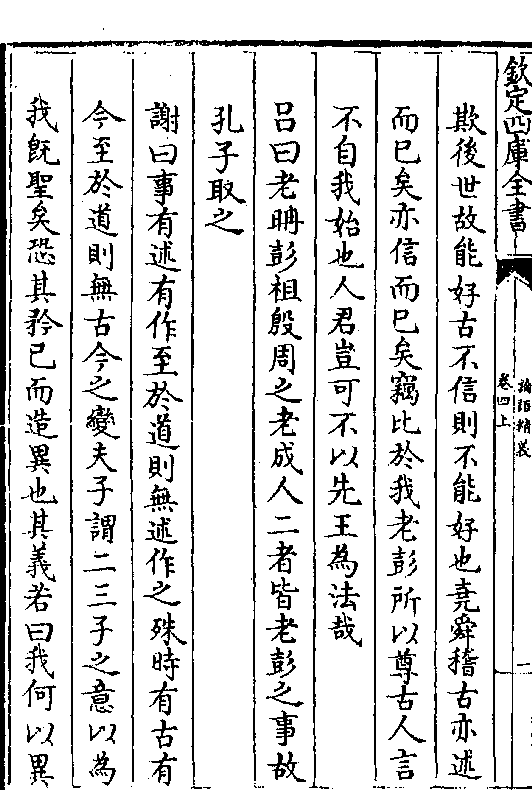 欽定四庫全書
論語精義
卷四上
欺後世故能好古不信則不能好也堯舜稽古亦述
而已矣亦信而已矣竊比於我老彭所以尊古人言
不自我始也人君豈可不以先王為法哉
呂曰老聃彭祖殷周之老成人二者皆老彭之事故
孔子取之
謝曰事有述有作至於道則無述作之殊時有古有
今至於道則無古今之變夫子謂二三子之意以為
我既聖矣恐其矜已而造異也其義若曰我何以異